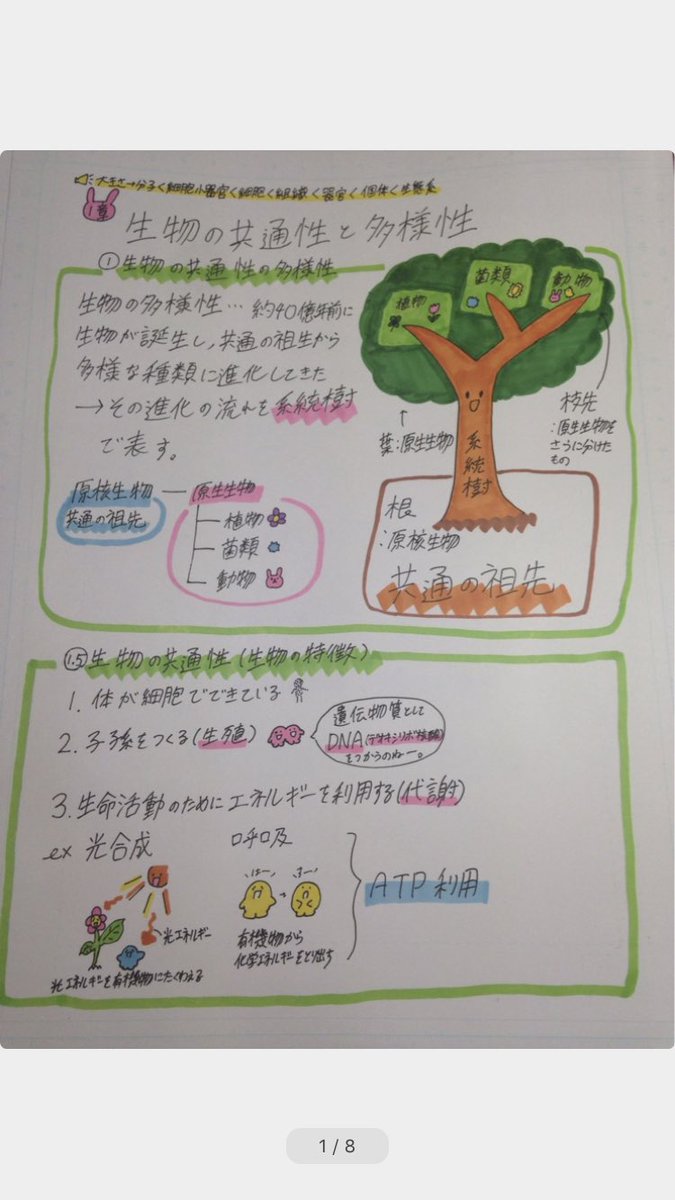 大きさ→分子<細胞小器官<細胞<組織<器官<個体<生態系
1章
生物の共通性と多様性
① 生物の共通性の多様性
生物の多様性… 約40億年前に
生物が誕生し、共通の祖生から
多様な種類に進化してきた
→その進化の流れを系統樹
で表す。
原核生物
共通の祖先
原生生物
植物
菌類
動物
植物
菌類
動物
系統樹
葉:原生生物
枝先
:原生生物を
さらに分けた
もの
根
:原核生物
共通の祖先
1.5 生物の共通性(生物の特徴)
1. 体が細胞でできている
2. 子孫をつくる(生殖)
遺伝物質として
DNA(デオキシリボ核酸)
をつかうのねー。
3. 生命活動のためにエネルギーを利用する(代謝)
ex 光合成
呼吸
光エネルギー
光エネルギーを有機物にたくわえる
はー
すー
有機物から
化学エネルギーをとり出す
ATP利用
1 / 8